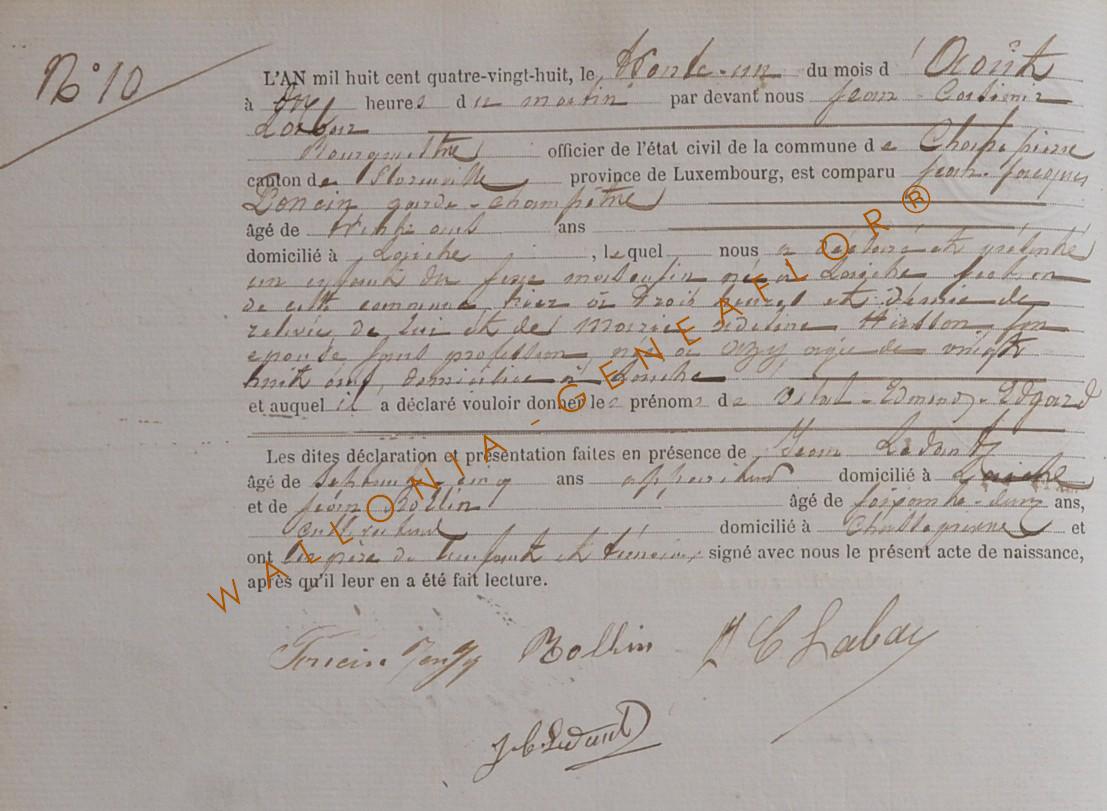 N° 10
L'AN mil huit cent quatre-vingt-huit, le trente-un du mois d'Août
à onze heures du matin par devant nous Jean-Casimir
Bourgmestre officier de l'état civil de la commune de Chassepierre
canton de Florenville province de Luxembourg, est comparu Jean-Jacques
garde-champêtre
âgé de trente ans ans
domicilié à Laiche, lequel nous a déclaré et présenté
un enfant du sexe masculin né à Laiche section
de cette commune hier à trois heures et demie de
relevée de lui et de Marie Adeline Hirsson, son
épouse sans profession, née à Izy âgée de vingt
huit ans, domiciliée à Laiche
et auquel il a déclaré vouloir donner les prénoms de Edmond-Edgard
Les dites déclaration et présentation faites en présence de Jean Ledant
âgé de septante-cinq ans domicilié à Laiche
et de Rollin âgé de soixante-deux ans,
cultivateur domicilié à Chassepierre et
ont les père de l'enfant et témoins, signé avec nous le présent acte de naissance,
après qu'il leur en a été fait lecture.
Rollin
WALLONIA - GENEAFLOR®